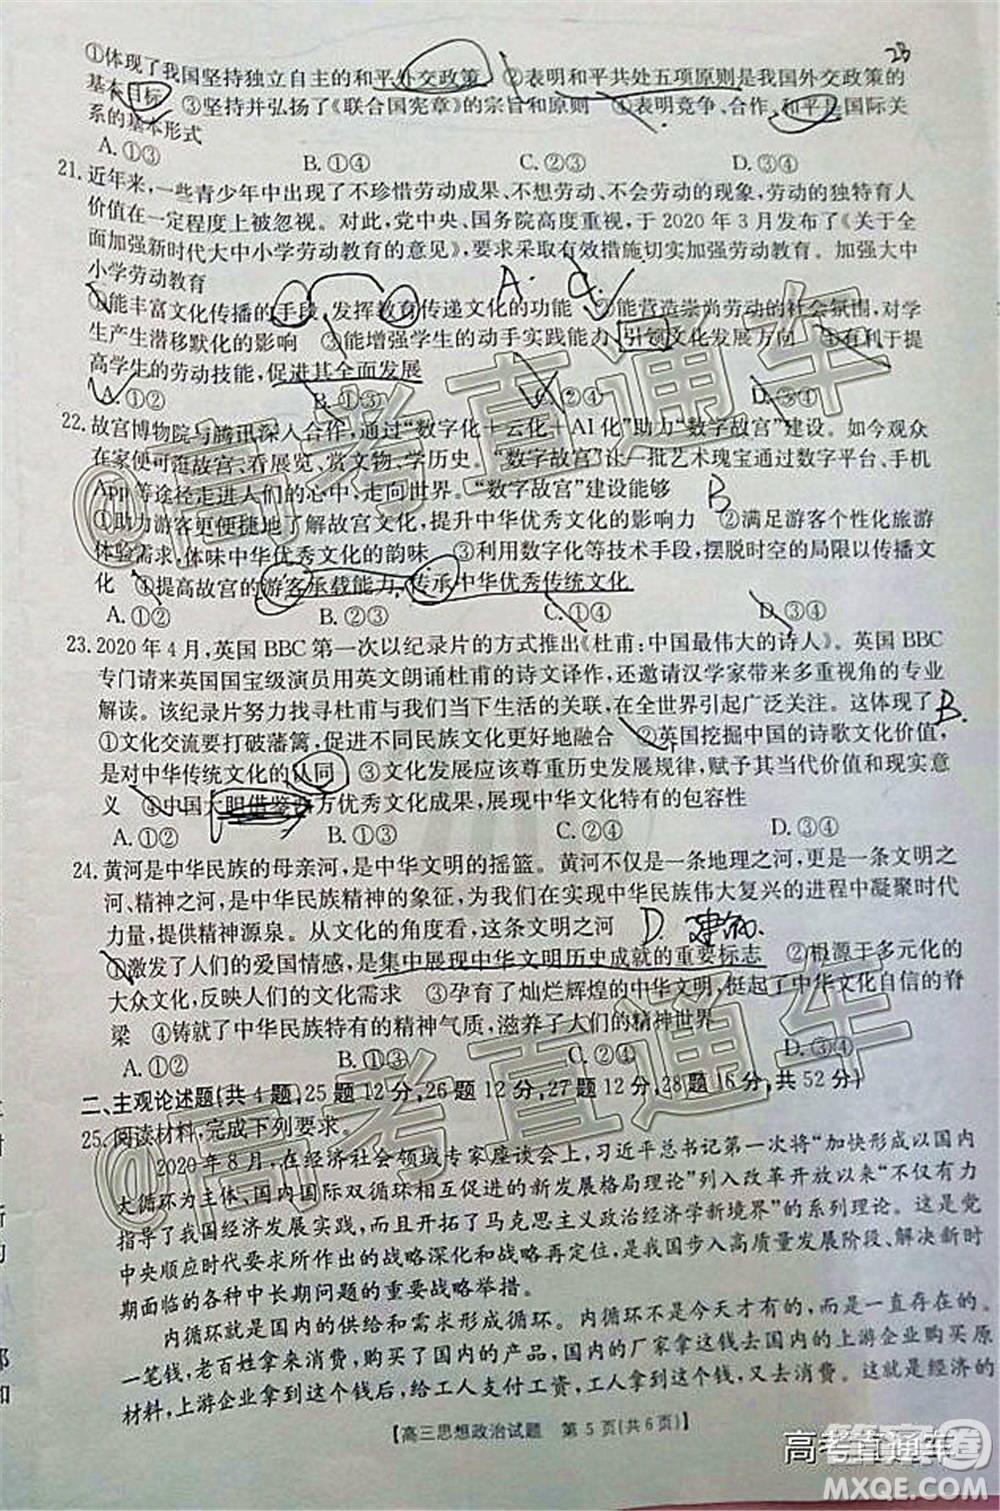 ①体现了我国坚持独立自主的和平外交政策 ②表明和平共处五项原则是我国外交政策的
基本目标 ③坚持并弘扬了《联合国宪章》的宗旨和原则 ④表明竞争、合作、和平是国际关
系的基本形式
A.①③ B.①④ C.②③ D.②④
21. 近年来,一些青少年中出现了不珍惜劳动成果、不想劳动、不会劳动的现象,劳动的独特育人
价值在一定程度上被忽视。对此,党中央、国务院高度重视,于 2020 年 3 月发布了《关于全
面加强新时代大中小学劳动教育的意见》,要求采取有效措施切实加强劳动教育。加强大中
小学劳动教育
①能丰富文化传播的手段,发挥教育传递文化的功能 ②能营造崇尚劳动的社会氛围,对学
生产生潜移默化的影响 ③能增强学生的动手实践能力,引领文化发展方向 ④有利于提
高学生的劳动技能,促进其全面发展
A.①② B.①③ C.②④ D.③④
22. 故宫博物院与腾讯深入合作,通过“数字化+云化+AI化”助力“数字故宫”建设。如今观众
在家便可逛故宫、看展览、赏文物、学历史。“数字故宫”让一批艺术瑰宝通过数字平台、手机
App等途径走进人们的心中,走向世界。“数字故宫”建设能够
①助力游客更便捷地了解故宫文化,提升中华优秀文化的影响力 ②满足游客个性化旅游
体验需求,体味中华优秀文化的韵味 ③利用数字化等技术手段,摆脱时空的局限以传播文
化 ④提高故宫的游客承载能力,传承中华优秀传统文化
A.①② B.②③ C.①④ D.③④
23. 2020 年 4 月,英国 BBC 第一次以纪录片的方式推出《杜甫:中国最伟大的诗人》。英国 BBC
专门请来英国国宝级演员用英文朗诵杜甫的诗文译作,还邀请汉学家带来多重视角的专业
解读。该纪录片努力找寻杜甫与我们当下生活的关联,在全世界引起广泛关注。这体现了
①文化交流要打破藩篱,促进不同民族文化更好地融合 ②英国挖掘中国的诗歌文化价值,
是对中华传统文化的认同 ③文化发展应该尊重历史发展规律,赋予其当代价值和现实意
义 ④中国大胆借鉴西方优秀文化成果,展现中华文化特有的包容性
A.①② B.①③ C.②④ D.③④
24. 黄河是中华民族的母亲河,是中华文明的摇篮。黄河不仅是一条地理之河,更是一条文明之
河、精神之河,是中华民族精神的象征,为我们在实现中华民族伟大复兴的进程中凝聚时代
力量,提供精神源泉。从文化的角度看,这条文明之河
①激发了人们的爱国情感,是集中展现中华文明历史成就的重要标志 ②根源于多元化的
大众文化,反映人们的文化需求 ③孕育了灿烂辉煌的中华文明,挺起了中华文化自信的脊
梁 ④铸就了中华民族特有的精神气质,滋养了人们的精神世界
A.①② B.①③ C.②④ D.③④
二、主观论述题(共 4 题,25 题 12 分,26 题 12 分,27 题 12 分,28 题 16 分,共 52 分)
25. 阅读材料,完成下列要求。
2020 年 8 月,在经济社会领域专家座谈会上,习近平总书记第一次将“加快形成以国内
大循环为主体、国内国际双循环相互促进的新发展格局理论”列入改革开放以来“不仅有力
指导了我国经济发展实践,而且开拓了马克思主义政治经济学新境界”的系列理论。这是党
中央顺应时代要求所作出的战略深化和战略再定位,是我国进入高质量发展阶段、解决新时
期面临的各种中长期问题的重要战略举措。
内循环就是国内的供给和需求的循环。内循环不是今天才有的,而是一直存在的。
一笔钱,老百姓拿来消费,购买了国内的产品,国内的厂家拿这些钱去国内的上游企业购买原
材料,上游企业拿到这个钱后,给工人支付工资,工人拿到这个钱后又去消费。这就是经济的
【高三思想政治试题 第 5 页(共 6 页)】
高考直通车
@高考直通车
@高考直通车
答案圈
MXQE.COM
23
A. C.
B
B.
D